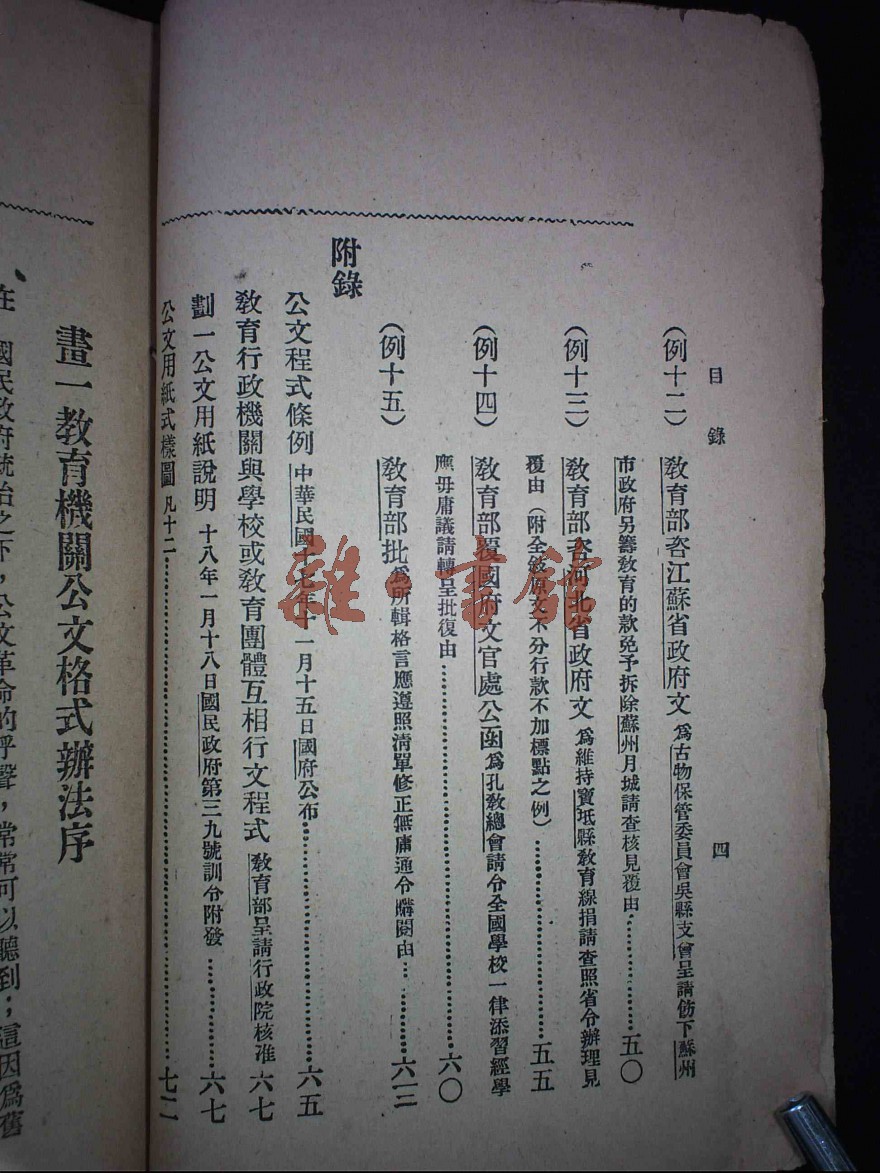 目錄
四
(例十二) 敎育部咨江蘇省政府文 爲古物保管委員會吳縣支會呈請飭下蘇州
市政府另籌敎育的款免予拆除蘇州月城請查核見覆由……五〇
(例十三) 敎育部咨河北省政府文 爲維持寶坻縣敎育線捐請查照省令辦理見
覆由(附全敍原文不分行款不加標點之例)……五五
(例十四) 敎育部覆國府文官處公函 爲孔敎總會請令全國學校一律添習經學
應毋庸議請轉呈批復由……六〇
(例十五) 敎育部批 爲所輯格言應遵照清單修正無庸通令購閱由……六三
附錄
公文程式條例 中華民國十七年十一月十五日國府公布……六五
敎育行政機關與學校或敎育團體互相行文程式 敎育部呈請行政院核准 六七
劃一公文用紙說明 十八年一月十八日國民政府第三九號訓令附發……六七
公文用紙式樣圖 凡十二……七二
畫一敎育機關公文格式辦法序
在 國民政府統治之下,公文革命的呼聲,常常可以聽到;這因爲舊
雜·書館